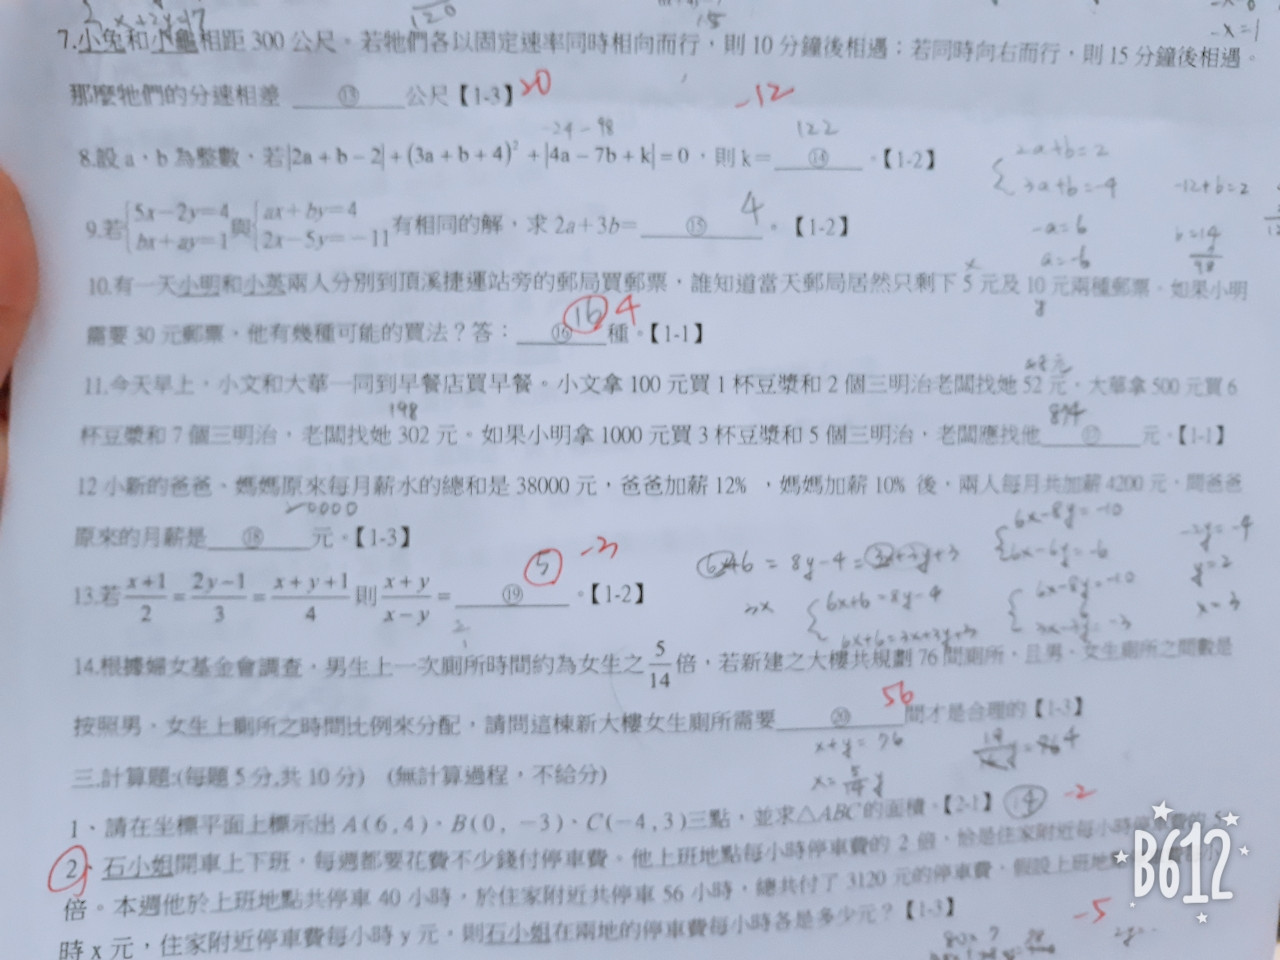 x+2y=17
120
15
-x=1
7.小兔和小龜相距 300 公尺。若牠們各以固定速率同時相向而行，則 10 分鐘後相遇；若同時向右而行，則 15 分鐘後相遇。
那麼牠們的分速相差 ⑬ 公尺【1-3】 20
-12
-24-98 122
8.設 a、b 為整數，若|2a+b-2|+(3a+b+4)²+|4a-7b+k|=0，則 k= ⑭ 。【1-2】
2a+b=2
3a+b=-4
-a=6
a=-6
-12+b=2
b=14
98
9.若{5x-2y=4 bx+ay=1 與{ax+by=4 2x-5y=-11 有相同的解，求 2a+3b= ⑮ 。【1-2】 4
10.有一天小明和小英兩人分別到頂溪捷運站旁的郵局買郵票，誰知道當天郵局居然只剩下 5 元及 10 元兩種郵票。如果小明
x y
需要 30 元郵票，他有幾種可能的買法？答： ⑯ 種。【1-1】 16 4
11.今天早上，小文和大華一同到早餐店買早餐。小文拿 100 元買 1 杯豆漿和 2 個三明治老闆找她 52 元，大華拿 500 元買 6
48元
198 874
杯豆漿和 7 個三明治，老闆找她 302 元。如果小明拿 1000 元買 3 杯豆漿和 5 個三明治，老闆應找他 ⑰ 元。【1-1】
12 小新的爸爸、媽媽原來每月薪水的總和是 38000 元，爸爸加薪 12%，媽媽加薪 10% 後，兩人每月共加薪 4200 元，問爸爸
20000
原來的月薪是 ⑱ 元。【1-3】
13.若 x+1/2 = 2y-1/3 = x+y+1/4 則 x+y/x-y = ⑲ 。【1-2】 5 -3
6x+6=8y-4=3x+3y+3
6x+6=8y-4
6x+6=3x+3y+3
6x-8y=-10
6x-6y=-6
6x-8y=-10
3x-3y=-3
-2y=-4
y=2
x=3
14.根據婦女基金會調查，男生上一次廁所時間約為女生之 5/14 倍，若新建之大樓共規劃 76 間廁所，且男、女生廁所之間數是
按照男、女生上廁所之時間比例來分配，請問這棟新大樓女生廁所需要 ⑳ 間才是合理的【1-3】 56
x+y=76
x=5/14y
三.計算題:(每題 5 分,共 10 分) (無計算過程，不給分)
1、請在坐標平面上標示出 A(6,4)、B(0,-3)、C(-4,3)三點，並求△ABC的面積。【2-1】 14 -2
2、石小姐開車上下班，每週都要花費不少錢付停車費。他上班地點每小時停車費的 2 倍，恰是住家附近每小時停車費的 5
倍。本週他於上班地點共停車 40 小時，於住家附近共停車 56 小時，總共付了 3120 元的停車費，假設上班地
時 x 元，住家附近停車費每小時 y 元，則石小姐在兩地的停車費每小時各是多少元？【1-3】 -5
B612